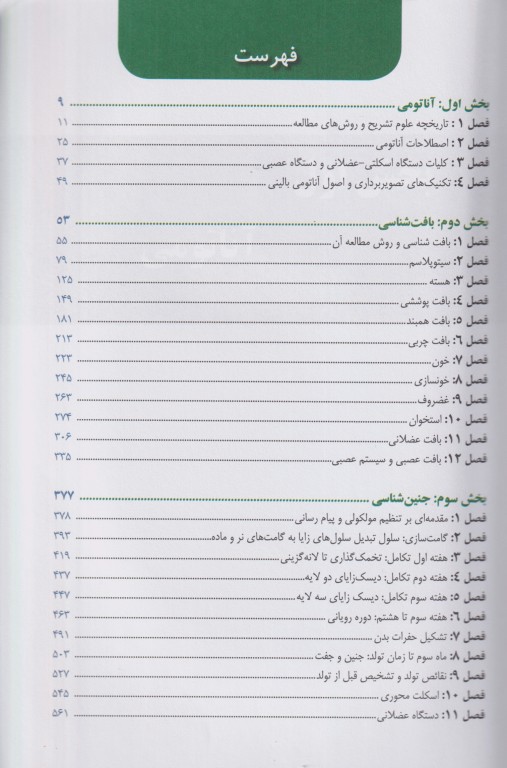 فهرست
بخش اول: آناتومی ۹
فصل ۱: تاریخچه علوم تشریح و روش‌های مطالعه ۱۱
فصل ۲: اصطلاحات آناتومی ۲۵
فصل ۳: کلیات دستگاه اسکلتی-عضلانی و دستگاه عصبی ۳۷
فصل ۴: تکنیک‌های تصویربرداری و اصول آناتومی بالینی ۴۹
بخش دوم: بافت‌شناسی ۵۳
فصل ۱: بافت شناسی و روش مطالعه آن ۵۵
فصل ۲: سیتوپلاسم ۷۹
فصل ۳: هسته ۱۲۵
فصل ۴: بافت پوششی ۱۴۹
فصل ۵: بافت همبند ۱۸۱
فصل ۶: بافت چربی ۲۱۳
فصل ۷: خون ۲۲۳
فصل ۸: خونسازی ۲۴۵
فصل ۹: غضروف ۲۶۳
فصل ۱۰: استخوان ۲۷۴
فصل ۱۱: بافت عضلانی ۳۰۶
فصل ۱۲: بافت عصبی و سیستم عصبی ۳۳۵
بخش سوم: جنین‌شناسی ۳۷۷
فصل ۱: مقدمه‌ای بر تنظیم مولکولی و پیام رسانی ۳۷۸
فصل ۲: گامت‌سازی: سلول تبدیل سلول‌های زایا به گامت‌های نر و ماده ۳۹۳
فصل ۳: هفته اول تکامل: تخمک‌گذاری تا لانه‌گزینی ۴۱۹
فصل ۴: هفته دوم تکامل: دیسک‌زایای دو لایه ۴۳۷
فصل ۵: هفته سوم تکامل: دیسک زایای سه لایه ۴۴۷
فصل ۶: هفته سوم تا هشتم: دوره رویانی ۴۶۳
فصل ۷: تشکیل حفرات بدن ۴۹۱
فصل ۸: ماه سوم تا زمان تولد: جنین و جفت ۵۰۳
فصل ۹: نقائص تولد و تشخیص قبل از تولد ۵۲۷
فصل ۱۰: اسکلت محوری ۵۴۵
فصل ۱۱: دستگاه عضلانی ۵۶۱